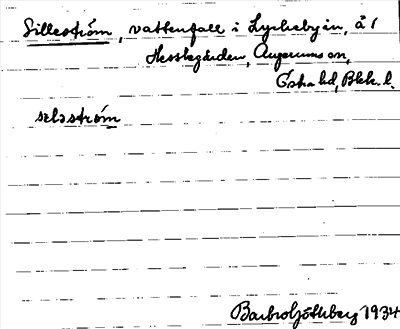 Silleström, vattenfall i Lyckebyån, å 1
Hestkgården, Augerums sn,
Östra hd, Blek. l.
sɛlsström
Barbro Göthberg 1934